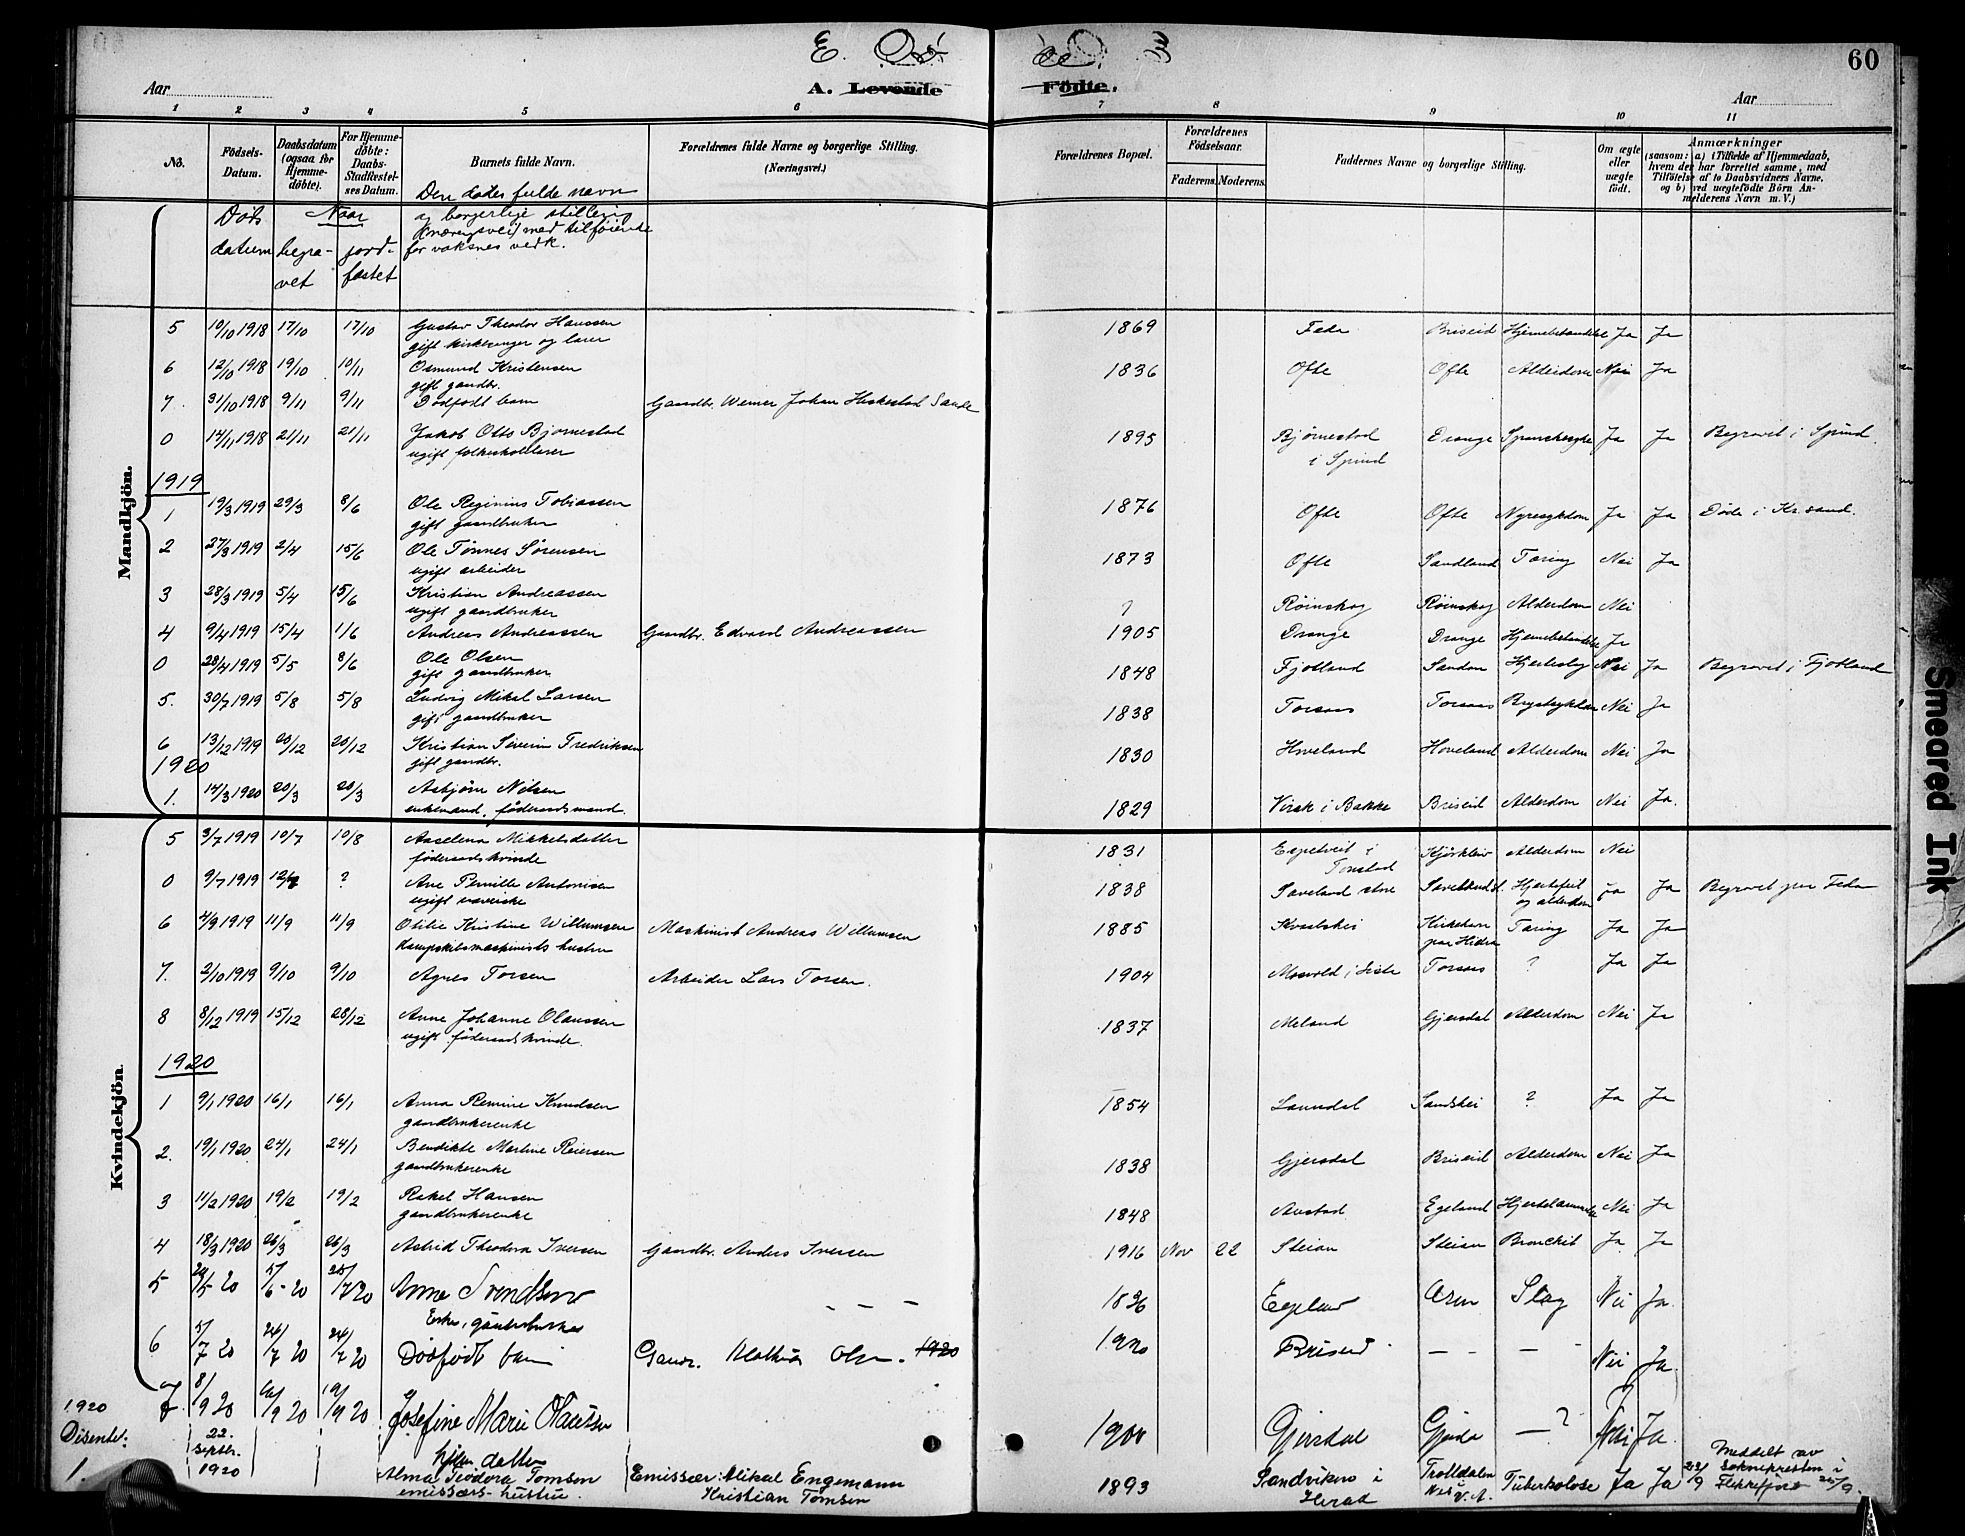 E.
60
Aar
A. Levende
Födte.
Aar
1 2 3 4 5 6 7 8 9 10 11
No.
Födsels-
Datum.
Daabsdatum
(ogsaa for
Hjemme-
döbte).
For Hjemme-
döbte:
Daabs-
Stadfæstel-
ses Datum.
Barnets fulde Navn.
Forældrenes fulde Navne og borgerlige Stilling.
(Næringsvei.)
Forældrenes Bopæl.
Forældrenes
Födselsaar.
Faderens. Moderens.
Faddernes Navne og borgerlige Stilling.
Om ægte
eller
uægte
födt.
Anmærkninger
(saasom: a) i Tilfælde af Hjemmedaab,
hvem der har forrettet samme, med
Tilföielse af to Daabsvidners Navne,
og b) ved uegtefödte Börn An-
melderens Navn m. V.)
Döds
datum
Naar
begra-
vet
jord-
fæstet
Den dødes fulde navn
og borgerlige stilling
(næringsvei) med tilföiende
for voksnes vedk.
Mandkjön.
5 10/10 1918 17/10 17/10 Gustav Theodor Hanssen 1869 Feda Briseid Ja Ja
gift kirkesanger og lærer
6 12/10 1918 19/10 10/11 Osmund Kristensen 1836 Ofte Ofte Alderdom Nei Ja
gift gaardbr.
7. 31/10 1918 9/11 9/11 Dødfødt barn Gaardbr. Werner Johan Heskestad Sande
0 14/11 1918 21/11 21/11 Jakob Otto Bjørnestad 1895 Bjørnestad Drange Spanskesyke Ja Ja Begravet i Spind.
ugift folkeskolelærer i Spind
1919
1 19/3 1919 29/3 8/6 Ole Reginius Tobiassen 1876 Ofte Ofte Nyresygdom Ja Ja Døde i Kr.sand.
gift gaardbruker
2 27/3 1919 2/4 15/6 Ole Tønnes Sørensen 1873 Ofte Sandland Tæring Nei Ja
ugift arbeider
3 28/3 1919 5/4 15/6 Kristian Andreassen ? Røinskog Røinskog Alderdom Nei
ugift gaardbruker
4 9/4 1919 15/4 1/6 Andreas Andreassen Gaardbr. Edvard Andreassen 1905 Drange Drange Ja
0 28/4 1919 5/5 8/6 Ole Olsen 1848 Fjotland Sandon Hjerteslag Nei Ja Begravet i Fjotland
gift gaardbruker
5. 30/7 1919 5/8 5/8 Ludvig Mikal Larsen 1838 Torsøs Torsøs Brystsykdom Nei Ja
gift gaardbruker
6 13/12 1919 20/12 20/12 Kristian Severin Fredriksen 1830 Hoveland Hoveland Alderdom Nei Ja
gift gaardbr.
1920
1. 14/3 1920 20/3 20/3 Asbjørn Nilsen 1829 Virak i Bakke Briseid Alderdom Nei Ja.
enkemand, føderaadsmand.
Kvindekjön.
5 3/7 1919 10/7 10/8 Aaselena Mikkelsdatter 1831 Espetveit i Alderdom Nei
føderaadskvinde Tonstad
0 9/7 1919 12/7 ? Ane Pernille Antonisen 1838 Hjertefeil Ja Ja Begravet paa Feda
ugift væverske og alderdom
6 4/9 1919 11/9 11/9 Otilie Kristine Willumsen Maskinist Andreas Willumsen 1885 Kirkehavn Tæring Ja Ja
dampskibsmaskinists hustru paa Hidra
7. 2/10 1919 9/10 9/10 Agnes Torsen Arbeider Lars Torsen. 1904 Mosvold i Liste Torsøs ? Ja Ja
8 8/12 1919 15/12 28/12 Anne Johanne Olaussen 1837 Meland Gjersdal Alderdom Nei Ja
ugift føderaadskvinde.
1920
1 9/1 1920 16/1 16/1 Anna Remine Knudsen 1854 Laundal Sandshei ? Ja Ja
gaardbrukerenke
2. 19/1 1920 24/1 24/1 Bendikte Martine Reiersen 1838 Gjersdal Briseid Alderdom Nei Ja
gaardbrukerenke
3 11/2 1920 19/2 19/2 Rakel Hansen 1848 Austad Egeland Nei Ja
gaardbrukerenke
4 18/3 1920 26/3 26/3 Astrid Theodora Iversen Gaardbr. Anders Iversen 1916 Nov 22 Steian Steian Bronchit Ja Ja
5 24/5 20 5/6-20 25/7 20 Anne Svendsen - - - 1836 Slag Nei Ja.
6 5/7 20 24/7 20 24/7 20 Dødfødt barn Mathias Olsen. 1920 1920 Briseid - - - Nei Ja.
7 8/9 20 19/9 20 Josefine Marie Olaussen 1900 Gjersdal - ? Nei Ja.
datter
1920
Disenter:
1. 22. septbr. 1920 Alma Teodora Tomsen Emissær: Mikal Engemann 1893 Sandvikens i Trolldalen Tuberkolose Ja Ja 23/9 Meddelt av
emissærs-hustru. Kristian Tomsen Herad Nes V. A. Soknepresten i
Flekkefjord 25/9.
Smeared Ink